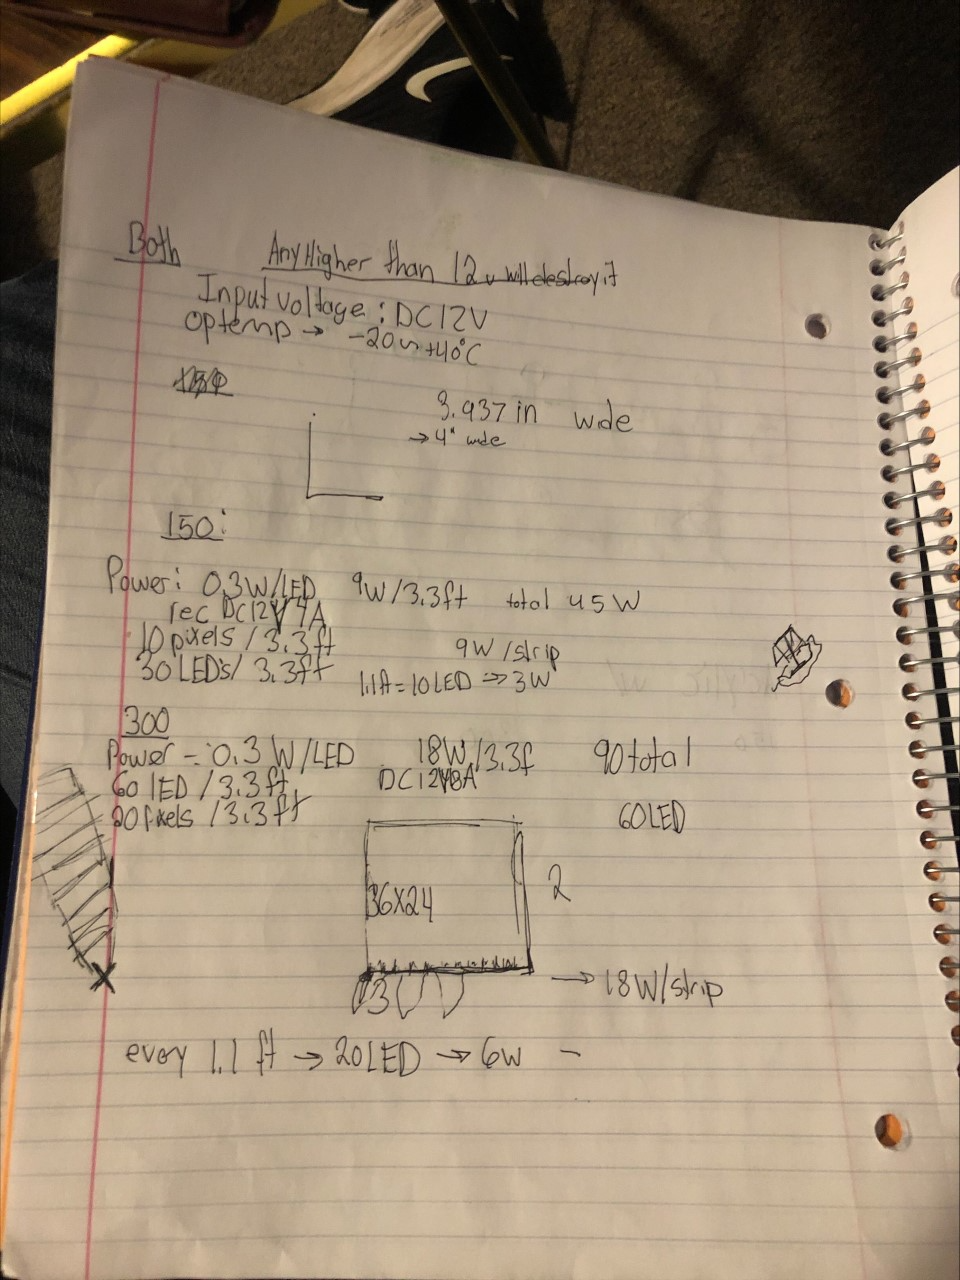 Both
Any Higher than 12v will destroy it
Input voltage : DC12V
Optemp → -20~+40°C
3.937 in wide
→ 4" wide
150:
Power: 0.3W/LED 9W/3.3ft total 45W
rec DC12V 4A
10 pixels / 3.3ft
9W/strip
30 LEDs/ 3.3ft
1.1ft = 10 LED ⇒ 3W
300
Power - 0.3 W/LED 18W/3.3f 90 total
60 LED / 3.3ft DC12V8A
20 Pixels / 3.3ft 60LED
36X24
2
3
→ 18W/strip
every 1.1 ft → 20LED → 6w -